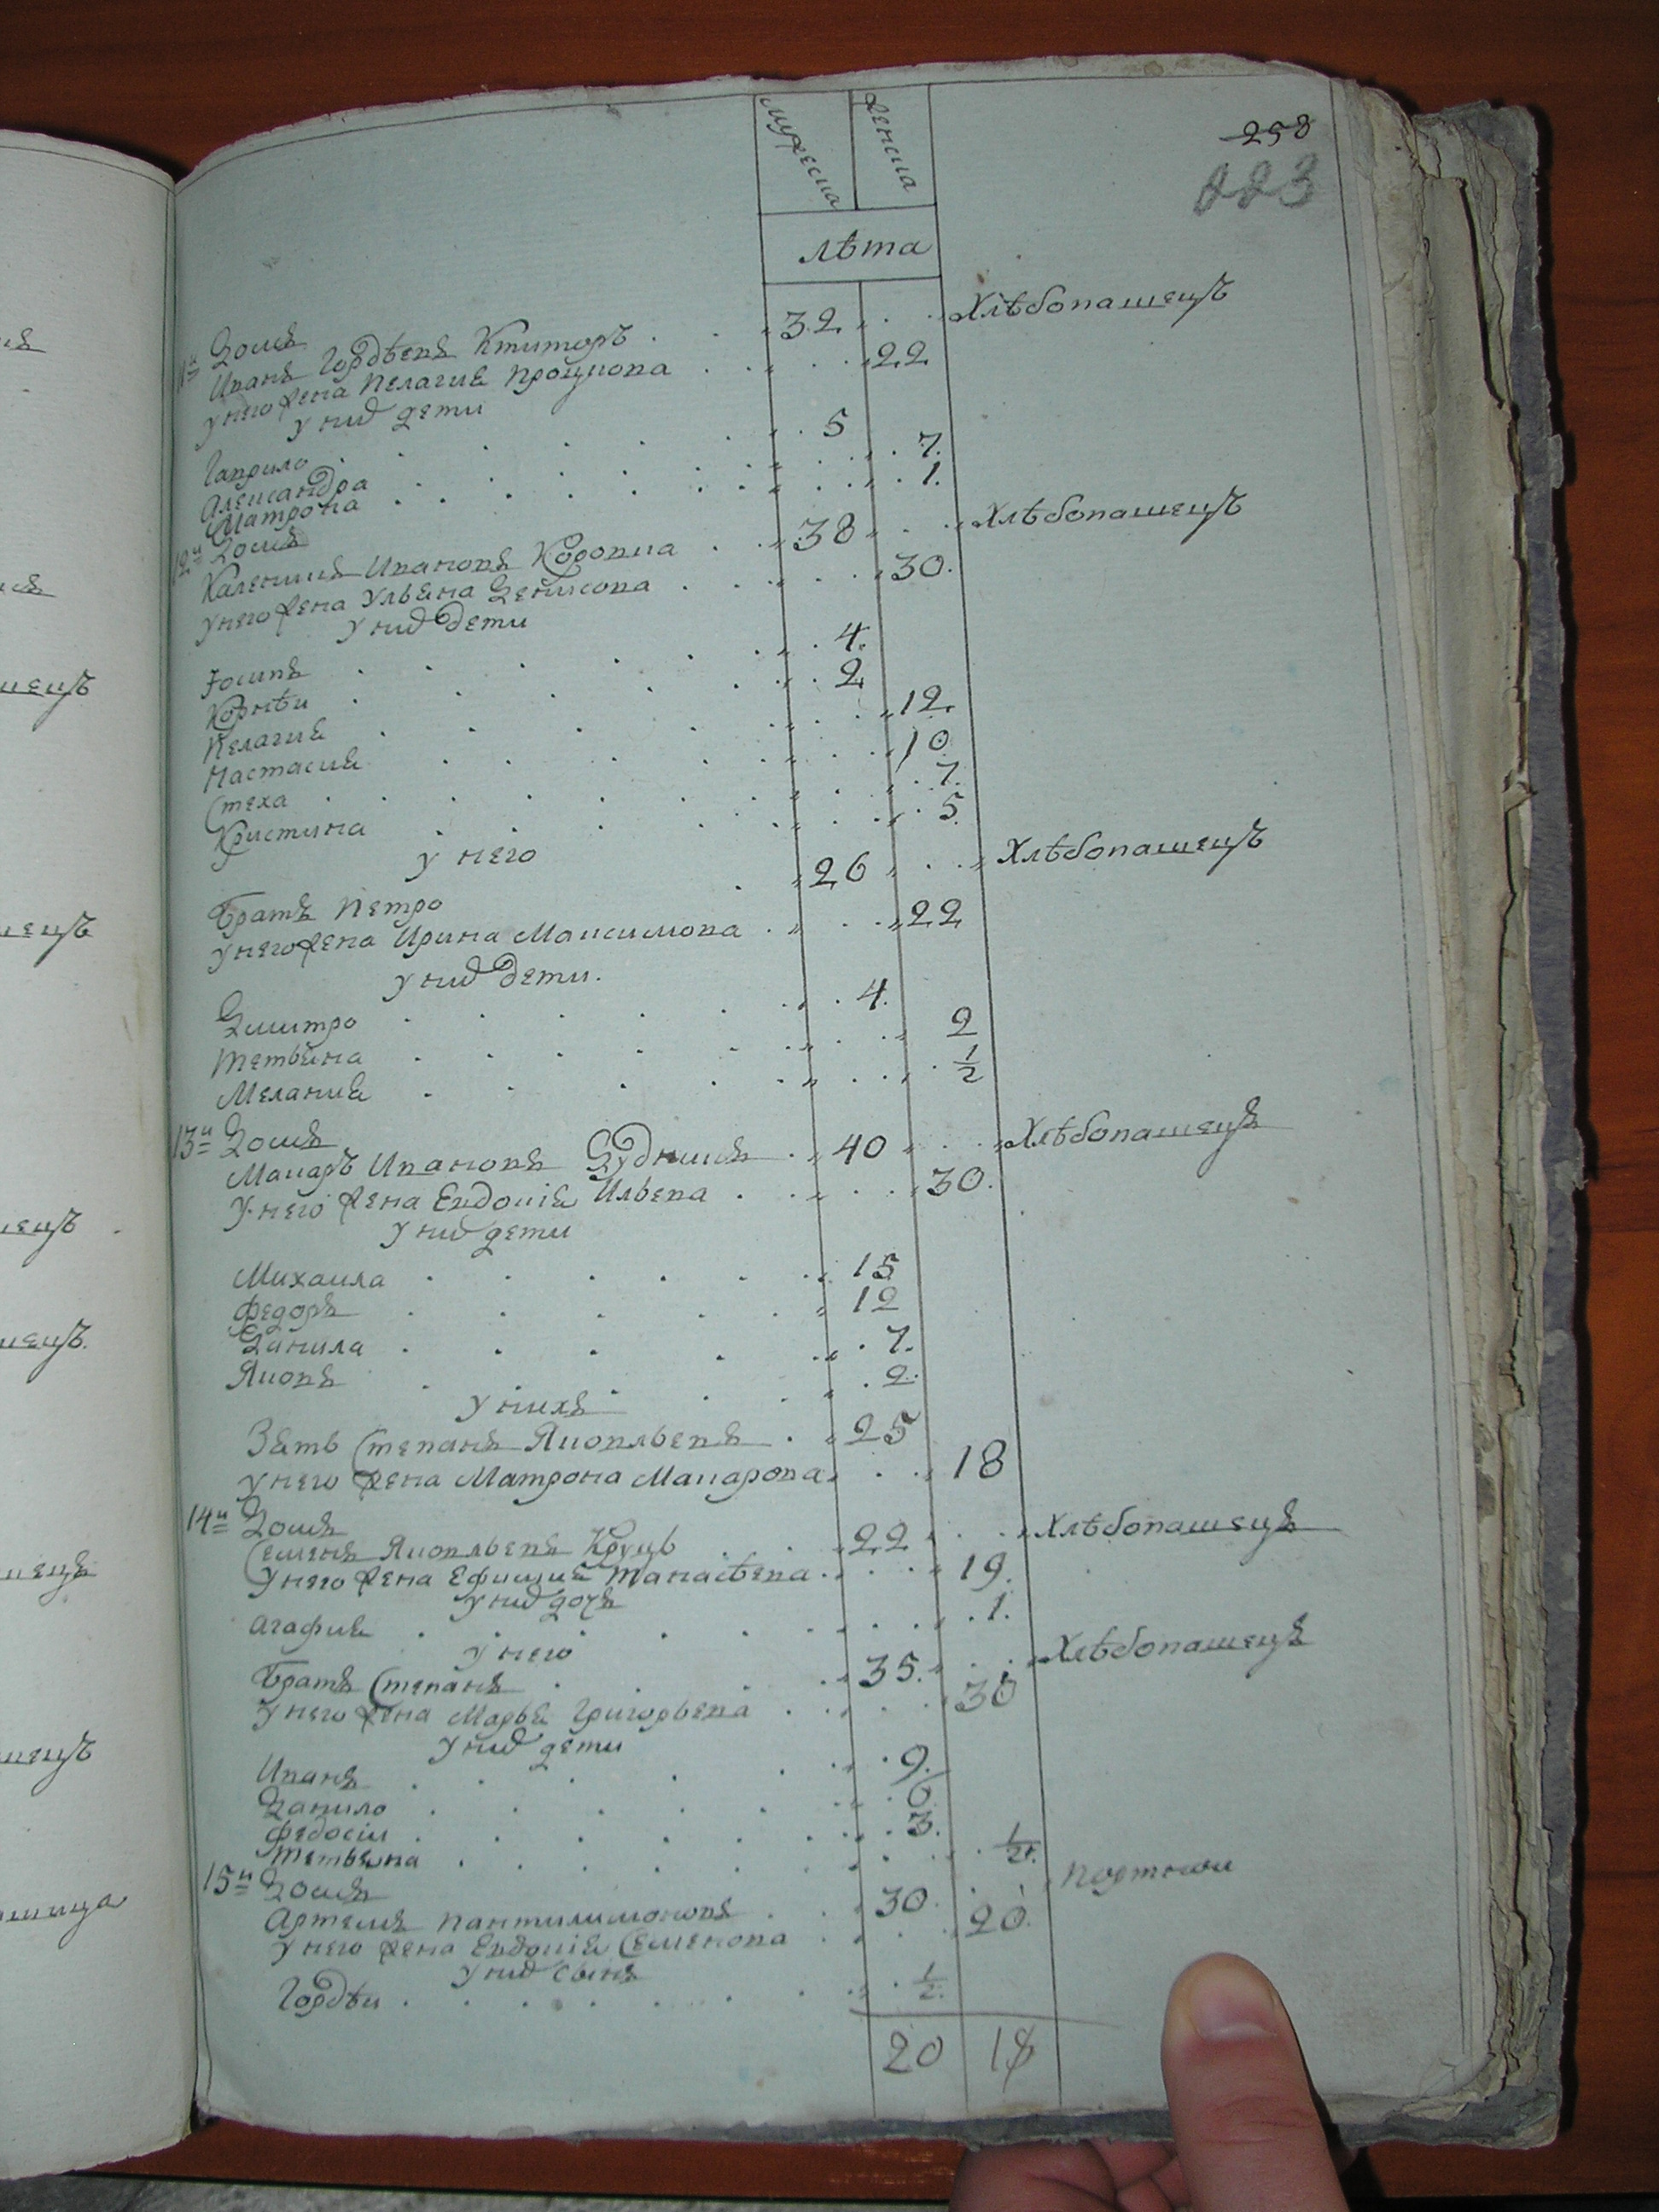 258
223
мужеска женска
лѣта
11й домъ
Иванъ Гордѣевъ Ктиторъ 32 Хлѣбопашецъ
у него жена Пелагия Процкова 22
у них дети
Гаврило 5
Александра 7
Матрона 1
12й домъ
Каленикъ Ивановъ 38 Хлѣбопашецъ
у него жена Ульяна Денисова 30
у них дети
Іосипъ 4
Корнѣи 2
Пелагия 12
Настасия 10
Стеха 7
Кристина 5
у него
Братъ Петро 26 Хлѣбопашецъ
у него жена Ирина Максимова 22
у них дети
Дмитро 4
Тетьяна 2
Мелания 1/2
13й домъ
Макаръ Ивановъ Судникъ 40 Хлѣбопашецъ
У него жена Евдокія Ильева 30
у них дети
Михаила 15
Федоръ 12
Данила 7
Яковъ 2
у нихъ
Зять Степанъ Яковлѣевъ 25
у него жена Матрона Макарова 18
14й домъ
Семенъ Яковлѣевъ 22 Хлѣбопашецъ
У него жена Ефимия Танасѣева 19
у них дочь
Агафия 1
у него
Братъ Степанъ 35 Хлѣбопашецъ
У него жена Марья Григорьева 30
у них дети
Иванъ 9
Данило 6
Федосіи 3
Тетьяна 1/2
15й домъ
Артемъ Пантилимоновъ 30 Портнои
У него жена Евдокія Семенова 20
у них сынъ
Гордѣи 1/2
20 18